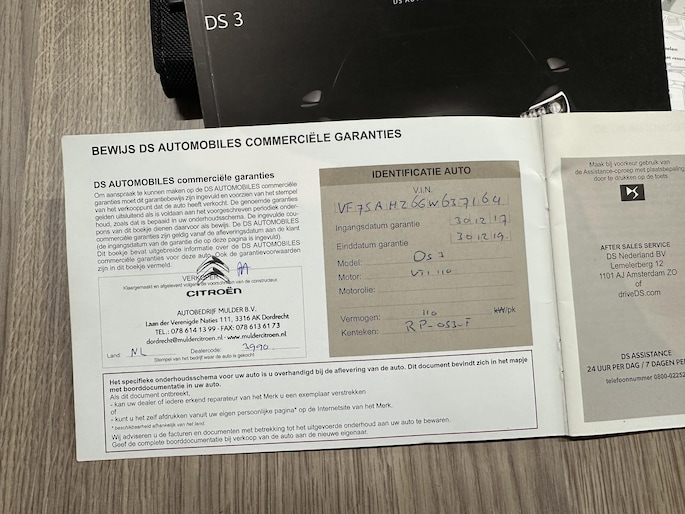 DS 3
BEWIJS DS AUTOMOBILES COMMERCIËLE GARANTIES
DS AUTOMOBILES commerciële garanties
Om aanspraak te kunnen maken op de DS AUTOMOBILES commerciële
garanties moet dit garantiebewijs zijn ingevuld en voorzien van het stempel
van het verkooppunt dat de auto heeft verkocht. De genoemde garanties
gelden uitsluitend als is voldaan aan het voorgeschreven periodiek onder-
houd, zoals dat is bepaald in uw onderhoudsschema. De ingevulde cou-
pons van dit boekje dienen daarvoor als bewijs. De DS AUTOMOBILES
commerciële garanties zijn geldig vanaf de afleveringsdatum aan de klant
(de ingangsdatum van de garantie die op deze pagina is ingevuld).
Dit boekje bevat uitgebreide informatie over de DS AUTOMOBILES
commerciële garanties voor deze auto. Ook de garantievoorwaarden
zijn in dit boekje vermeld.
VERKOPER
Klaargemaakt en afgeleverd volgens de voorschriften van de constructeur.
CITROËN
AUTOBEDRIJF MULDER B.V.
Laan der Verenigde Naties 111, 3316 AK Dordrecht
TEL.: 078 614 13 99 - FAX: 078 613 61 73
dordrecht@muldercitroen.nl - www.muldercitroen.nl
Land: NL Dealercode: 3990
Stempel van het bedrijf waar de auto is gekocht
IDENTIFICATIE AUTO
V.I.N.
VF7SAHZ6GW637164
Ingangsdatum garantie 30 12 17
Einddatum garantie 30 12 19
Model: DS 3
Motor: VTi 110
Motorolie:
Vermogen: 110 kW/pk
Kenteken: RP-053-F
Het specifieke onderhoudsschema voor uw auto is u overhandigd bij de aflevering van de auto. Dit document bevindt zich in het mapje
met boorddocumentatie in uw auto.
Als dit document ontbreekt,
- kan uw dealer of iedere erkend reparateur van het Merk u een exemplaar verstrekken
of
- kunt u het zelf afdrukken vanuit uw eigen persoonlijke pagina* op de Internetsite van het Merk.
* beschikbaarheid afhankelijk van het land.
Wij adviseren u de facturen en documenten met betrekking tot het uitgevoerde onderhoud aan uw auto te bewaren.
Geef de complete boorddocumentatie bij verkoop van de auto aan de nieuwe eigenaar.
Maak bij voorkeur gebruik van
de Assistance-oproep met plaatsbepaling
door te drukken op de toets.
AFTER SALES SERVICE
DS Nederland BV
Lemelerberg 12
1101 AJ Amsterdam ZO
of
driveDS.com
DS ASSISTANCE
24 UUR PER DAG / 7 DAGEN PER
telefoonnummer 0800-02252